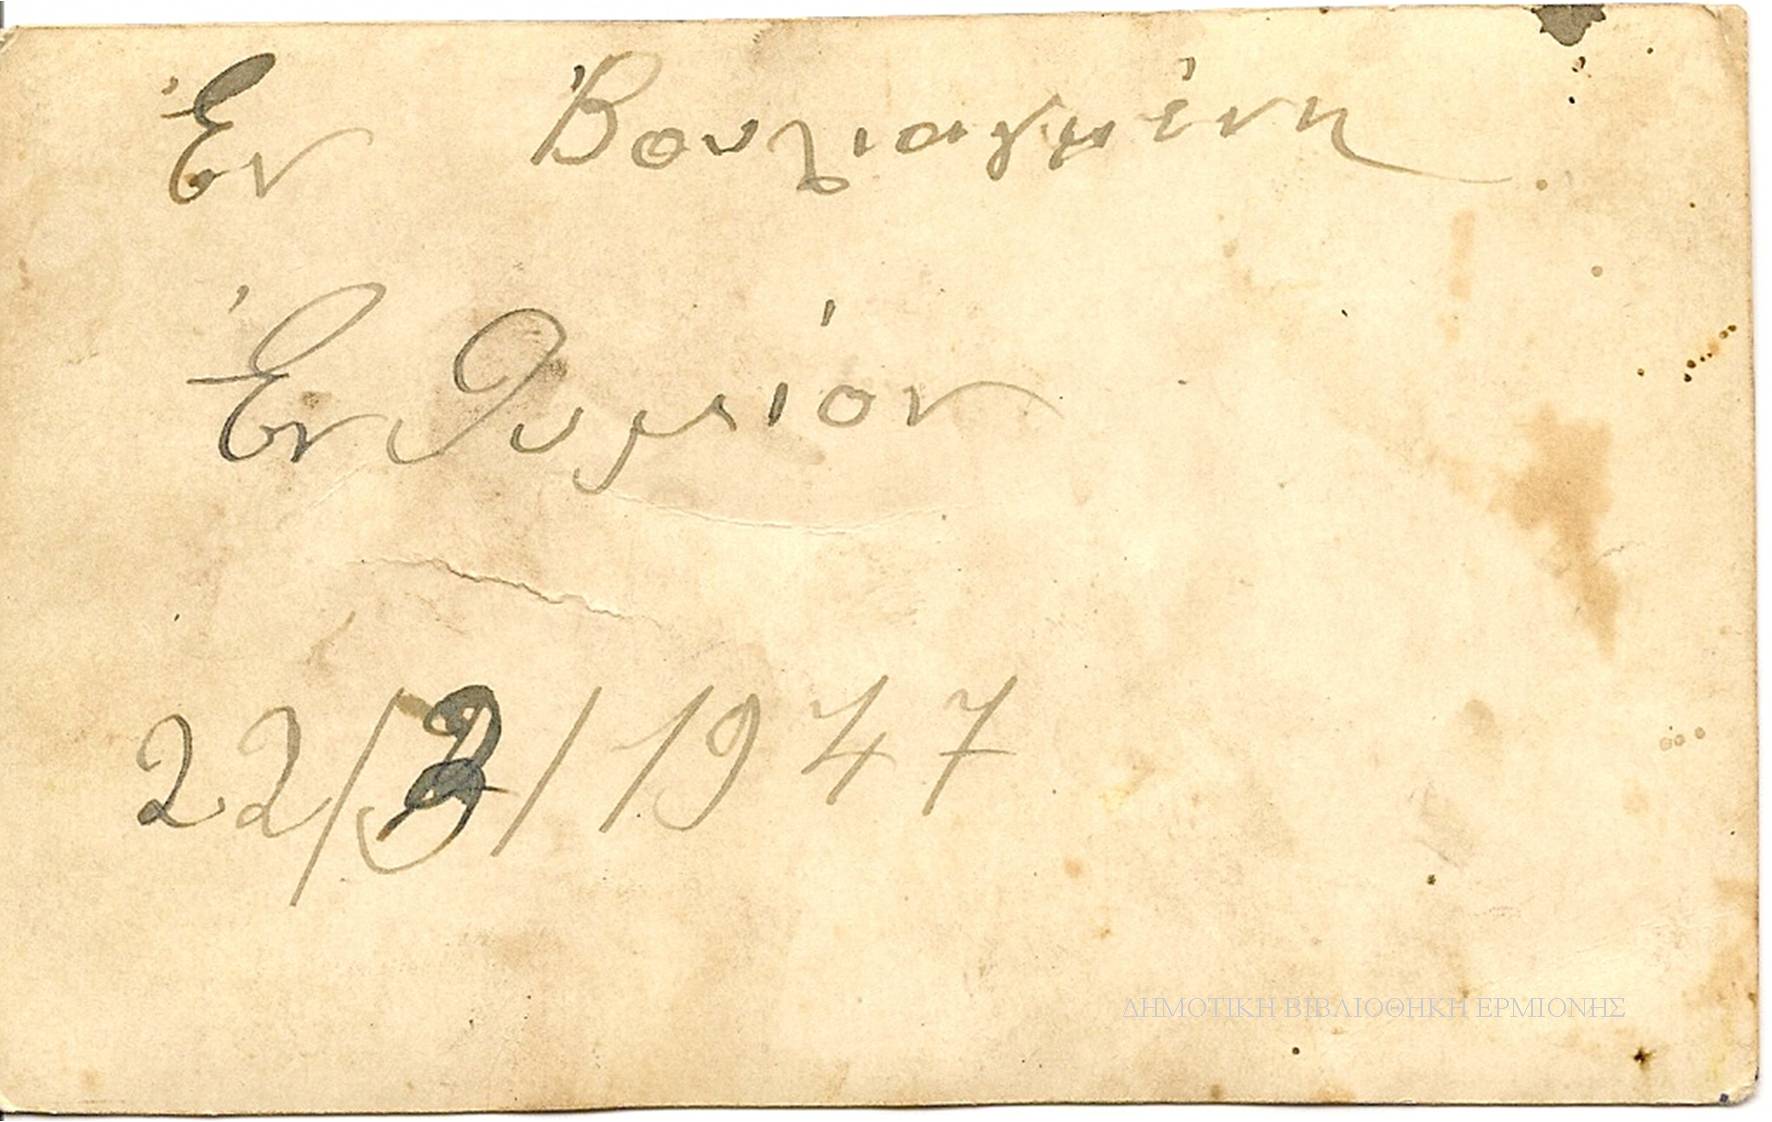 Ἐν Βουλιαγμένη
Ἐνθυμιόν
22/3/1947
ΔΗΜΟΤΙΚΗ ΒΙΒΛΙΟΘΗΚΗ ΕΡΜΙΟΝΗΣ